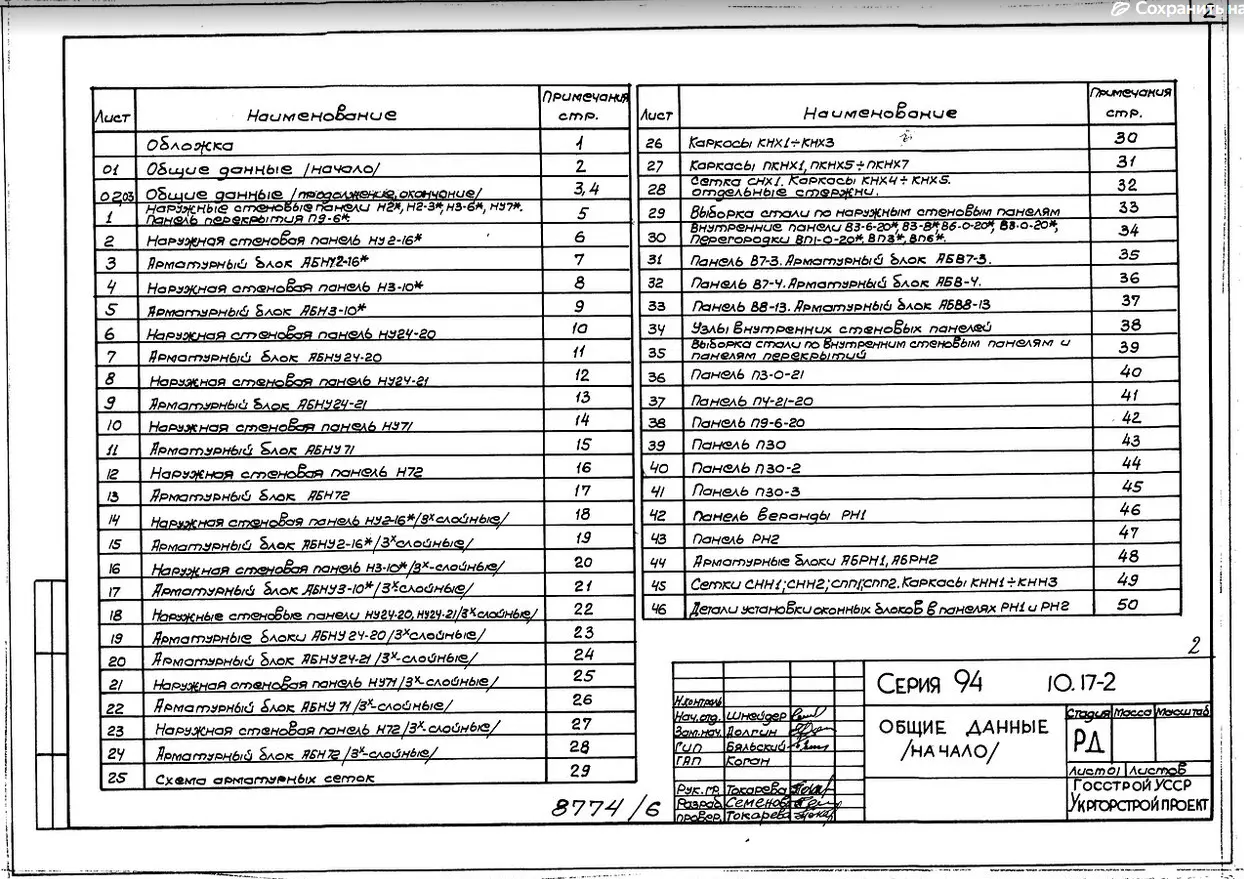 Сохранить на
2
Лист Наименование Примечания стр.
Обложка 1
01 Общие данные /начало/ 2
02,03 Общие данные /продолжение, окончание/ 3,4
1 Наружные стеновые панели Н2*, Н2-3*, Н3-6*, НУ7*. Панель перекрытия П9-6*. 5
2 Наружная стеновая панель НУ2-16* 6
3 Арматурный блок АБНУ2-16* 7
4 Наружная стеновая панель Н3-10* 8
5 Арматурный блок АБН3-10* 9
6 Наружная стеновая панель НУ24-20 10
7 Арматурный блок АБНУ24-20 11
8 Наружная стеновая панель НУ24-21 12
9 Арматурный блок АБНУ24-21 13
10 Наружная стеновая панель НУ71 14
11 Арматурный блок АБНУ71 15
12 Наружная стеновая панель Н72 16
13 Арматурный блок АБН72 17
14 Наружная стеновая панель НУ2-16*/3х слойные/ 18
15 Арматурный блок АБНУ2-16*/3х слойные/ 19
16 Наружная стеновая панель Н3-10*/3х-слойные/ 20
17 Арматурный блок АБНУ3-10*/3х-слойные/ 21
18 Наружные стеновые панели НУ24-20, НУ24-21/3х слойные/ 22
19 Арматурные блоки АБНУ24-20/3х слойные/ 23
20 Арматурный блок АБНУ24-21/3х-слойные/ 24
21 Наружная стеновая панель НУ71/3х-слойные/ 25
22 Арматурный блок АБНУ71/3х-слойные/ 26
23 Наружная стеновая панель Н72/3х-слойные/ 27
24 Арматурный блок АБН72/3х-слойные/ 28
25 Схема арматурных сеток 29
Лист Наименование Примечания стр.
26 Каркасы КНХ1÷КНХ3 30
27 Каркасы ПКНХ1, ПКНХ5÷ПКНХ7 31
28 Сетка СНХ1. Каркасы КНХ4÷КНХ5. отдельные стержни. 32
29 Выборка стали по наружным стеновым панелям 33
30 Внутренние панели В3-6-20*, В3-8*, В6-0-20*, В8-0-20*, Перегородки ВП1-0-20*, ВП3*, ВП6*. 34
31 Панель В7-3. Арматурный блок АБВ7-3. 35
32 Панель В7-4. Арматурный блок АБВ-4. 36
33 Панель В8-13. Арматурный блок АБВ8-13 37
34 Узлы внутренних стеновых панелей 38
35 Выборка стали по внутренним стеновым панелям и панелям перекрытий 39
36 Панель П3-0-21 40
37 Панель П4-21-20 41
38 Панель П9-6-20 42
39 Панель П30 43
40 Панель П30-2 44
41 Панель П30-3 45
42 Панель веранды РН1 46
43 Панель РН2 47
44 Арматурные блоки АБРН1, АБРН2 48
45 Сетки СНН1; СНН2; СПП1; СПП2. Каркасы КНН1÷КНН3 49
46 Детали установки оконных блоков в панелях РН1 и РН2 50
2
8774/6
Н.контроль
Нач.отд. Шнейдер
Зам.нач. Долгин
ГИП Бяльский
ГАП Коган
Рук.гр. Токарева
Разраб. Семенова
провер. Токарева
Серия 94 10.17-2
ОБЩИЕ ДАННЫЕ
/НАЧАЛО/
Стадия Масса Масштаб
РД
Лист 01 Листов
ГОССТРОЙ УССР
УКРГОРСТРОЙПРОЕКТ